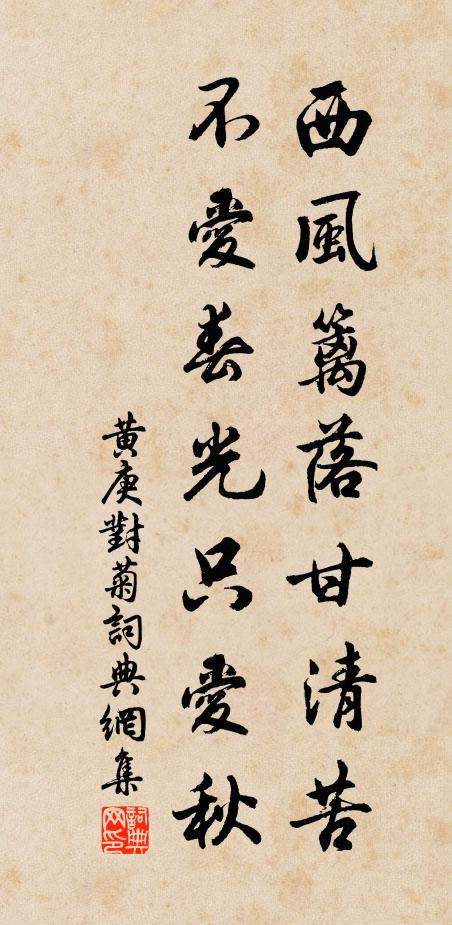 西風籬落甘清苦
不愛春光只愛秋
黃庚對菊詞典網集
詞典網印